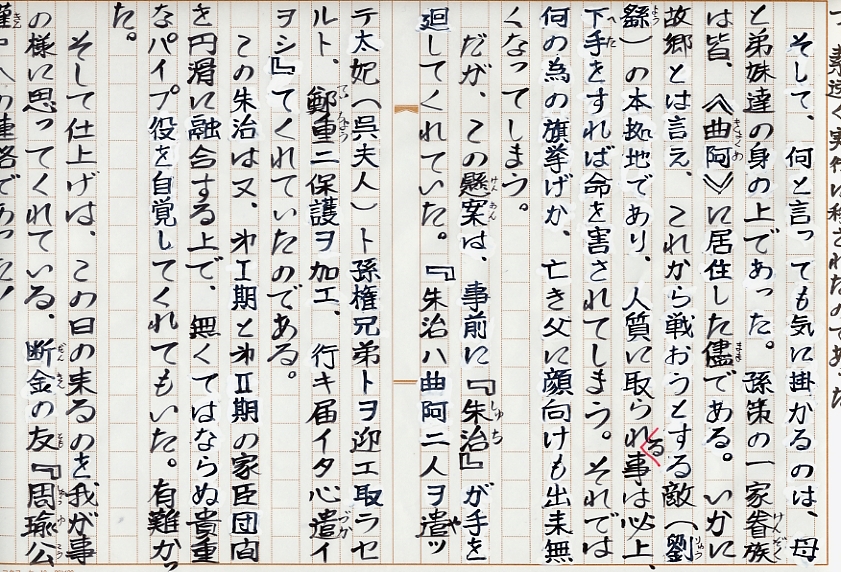 そして、何と言っても気に掛かるのは、母
と弟妹達の身の上であった。孫策の一家眷族けんぞく
は皆、《曲阿きょくあ》に居住した儘ままである。いかに
故郷とは言え、これから戦おうとする敵(劉りゅう
繇よう)の本拠地であり、人質に取られる事は必上、
下手へたをすれば命を害されてしまう。それでは
何の為の旗挙げか、亡き父に顔向けも出来無
くなってしまう。
だが、この懸案けんあんは、事前に『朱治しゅち』が手を
廻してくれていた。『朱治ハ曲阿ニ人ヲ遣やッ
テ太妃(呉夫人)ト孫権兄弟トヲ迎エ取ラセ
ルト、鄭重ていちょうニ保護ヲ加エ、行キ届イタ心遣づかイ
ヲシ』てくれていたのである。
この朱治は又、㐧Ⅰ期と㐧Ⅱ期の家臣団間
を円滑に融合する上で、無くてはならぬ貴重
なパイプ役を自覚してくれてもいた。有難かっ
た。
そして仕上げは、この日の来るのを我が事
の様に思ってくれている、断金だんきんの友とも『周瑜公しゅうゆこう